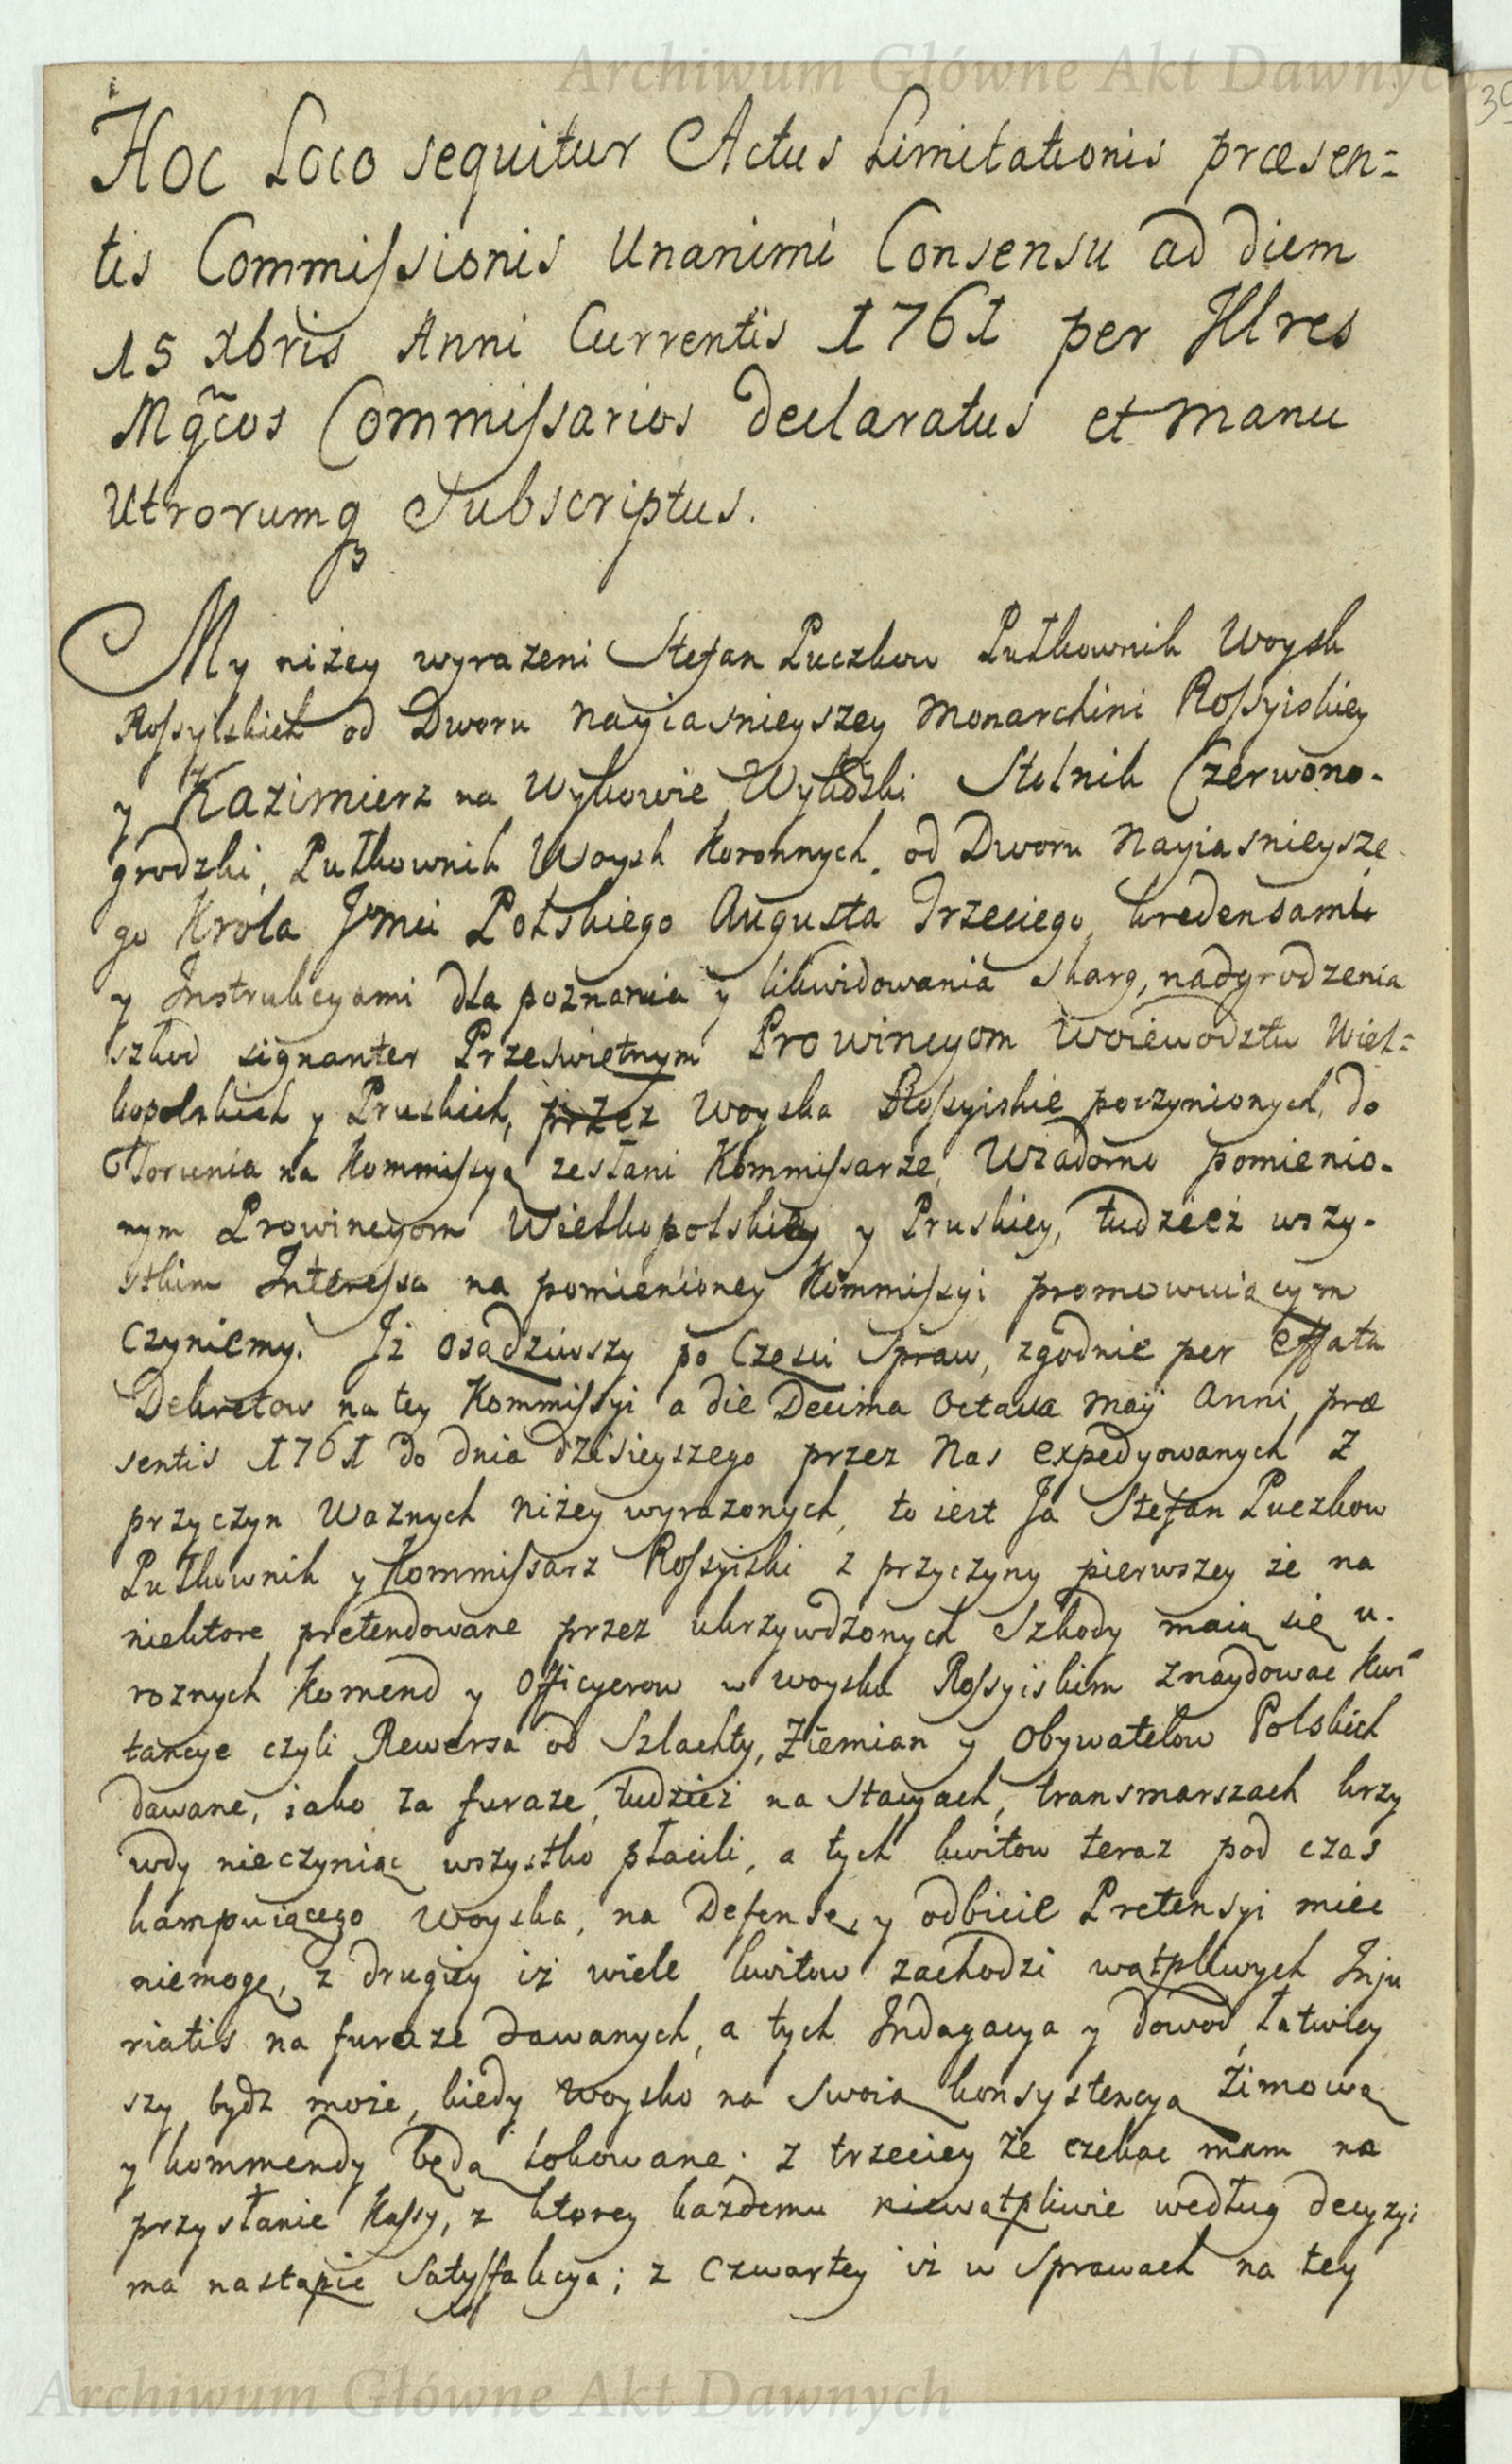 Archiwum Główne Akt Dawnych
39
Hoc Loco sequitur Actus Limitationis præsen=
tis Commissionis Unanimi Consensu ad diem
15 Xbris Anni Currentis 1761 per Illres
Mgcos Commissarios declaratus et manu
Utrorumq Subscriptus.
My niżey wyrażeni Stefan Puczkow Pułkownik Woysk
Rossyiskich od Dworu Nayiasnieyszey Monarchini Rossyiskiey
y Kazimierz na Wykowie Wykoski Stolnik Czerwono-
grodzki, Pułkownik Woysk Koronnych, od Dworu Nayiasnieysze
go Krola Jmci Polskiego Augusta Trzeciego, kredensami
y Instrukcyami dla poznania y likwidowania skarg, nadgrodzenia
szkod signanter Przeswietnym Prowincyom Woiewodztw Wiel=
kopolskich y Pruskich, przez Woyska Rossyiskie poczynionych, do
Torunia na Kommissyą zesłani Kommissarze, Wiadomo pomienio-
nym Prowincyom Wielkopolskiey y Pruskiey, tudzież wszy-
stkim Interessa na pomienioney Kommissyi promowuiącym
Czyniemy. Iż osądziwszy po Części Spraw, zgodnie per effata
Dekretow na tey Kommissyi a die Decima Octava Maÿ Anni præ
sentis 1761 do dnia dzisieyszego przez Nas expedyowanych Z
przyczyn Waznych niżey wyrazonych, to iest Ja Stefan Puczkow
Pułkownik y Kommissarz Rossyiski z przyczyny pierwszey że na
niektore pretendowane przez ukrzywdzonych Szkody maią się u.
roznych Komend y Officyerow w woysku Rossyiskim znaydowac Kwi
tancye czyli Rewersa od Szlachty, Ziemian y Obywatelow Polskich
dawane, iako za furaze, tudzież na stacyach, transmarszach krzy
wdy nieczyniąc wszystko płacili, a tych kwitow teraz pod czas
kampuiącego Woyska, na Defensę, y odbicie Pretensyi miec
niemogę, z drugiey iż wiele kwitow zachodzi wątpliwych Inju
riatis na furaze dawanych, a tych Indagacya y dowod łatwiey
szy bydz może, kiedy Woysko na swoią konsystencyą Zimową
y kommendy będą lokowane; z trzeciey że czekac mam na
przysłanie Kassy, z ktorey kazdemu niewątpliwie według decyzyi
ma nastąpic Satysfakcya; z Czwartey iż w Sprawach na tey
Archiwum Główne Akt Dawnych